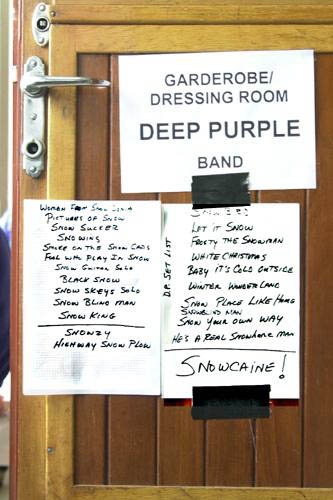 GARDEROBE/
DRESSING ROOM
DEEP PURPLE
BAND
WOMAN FROM SNOW
PICTURES OF SNOW
SNOW SUCKER
SNOWING
SMOKE ON THE SNOW CAPS
FOOL WITH PLAY IN SNOW
SNOW GUITAR SOLO
BLACK SNOW
SNOW SKEYS SOLO
SNOW BLIND MAN
SNOW KING
SNOWZY
HIGHWAY SNOW PLOW
D.P. SET LIST
LET IT SNOW
FROSTY THE SNOWMAN
WHITE CHRISTMAS
BABY IT'S COLD OUTSIDE
WINTER WONDERLAND
SNOW PLACE LIKE HOME
SNOWBLIND MAN
SNOW YOUR OWN WAY
HE'S A REAL SNOWHERE MAN
SNOWCAINE!